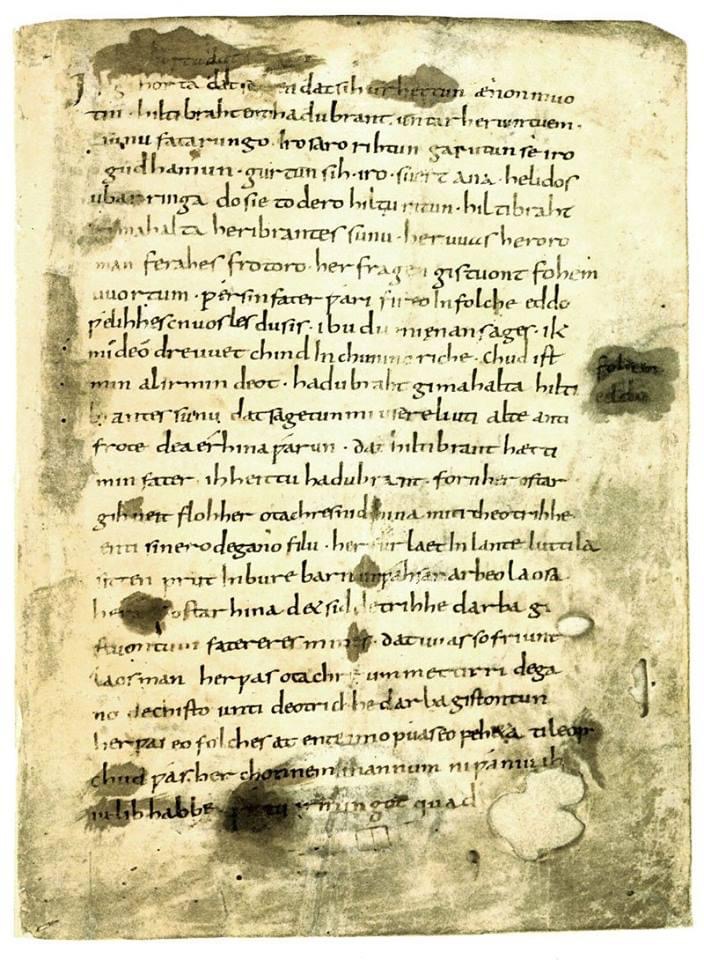 gihorta dat seggen dat sih urhettun ænon muo
tin · hiltibraht enti hadubrant · untar heriun tuem ·
sunu fatarungo · iro saro rihtun garutun se iro
gudhamun · gurtun sih · iro · suert ana · helidos
ubar ringa do sie to dero hiltu ritun · hiltibraht
gimahalta heribrantes sunu · her uuas heroro
man ferahes frotoro · her fragen gistuont fohem
uuortum · ƿer sin fater ƿari fireo In folche eddo
ƿelihhes cnuosles du sis · ibu du mi enan sages · ik
mi deo dre uuet chind In chunincriche · chud ist
min al irmin deot · hadubraht gimahalta hilti
brantes sunu dat sagetun mi usere liuti alte anti
frote dea érhina ƿarun · dat hiltibrant hætti
min fater · ih heittu hadubrant · forn her ostar
gihueit floh her otachres nid hina miti theotrihhe
enti sinero degano filu · her furlaet In lante luttila
sitten prut In bure barn unƿahsan arbeo laosa
ostar hina d& sid detrihhe darba gi
stuontum fatereres mines · dat uuas so friunt
laos man her ƿas otachre ummettirri dega
no dechisto unti deotrichhe darba gistontun
her ƿas eo folches at ente imo ƿuas eo feheta ti leop
chud ƿas her chonnem mannum ni ƿaniu ih
iu lib habbe irmingot quad